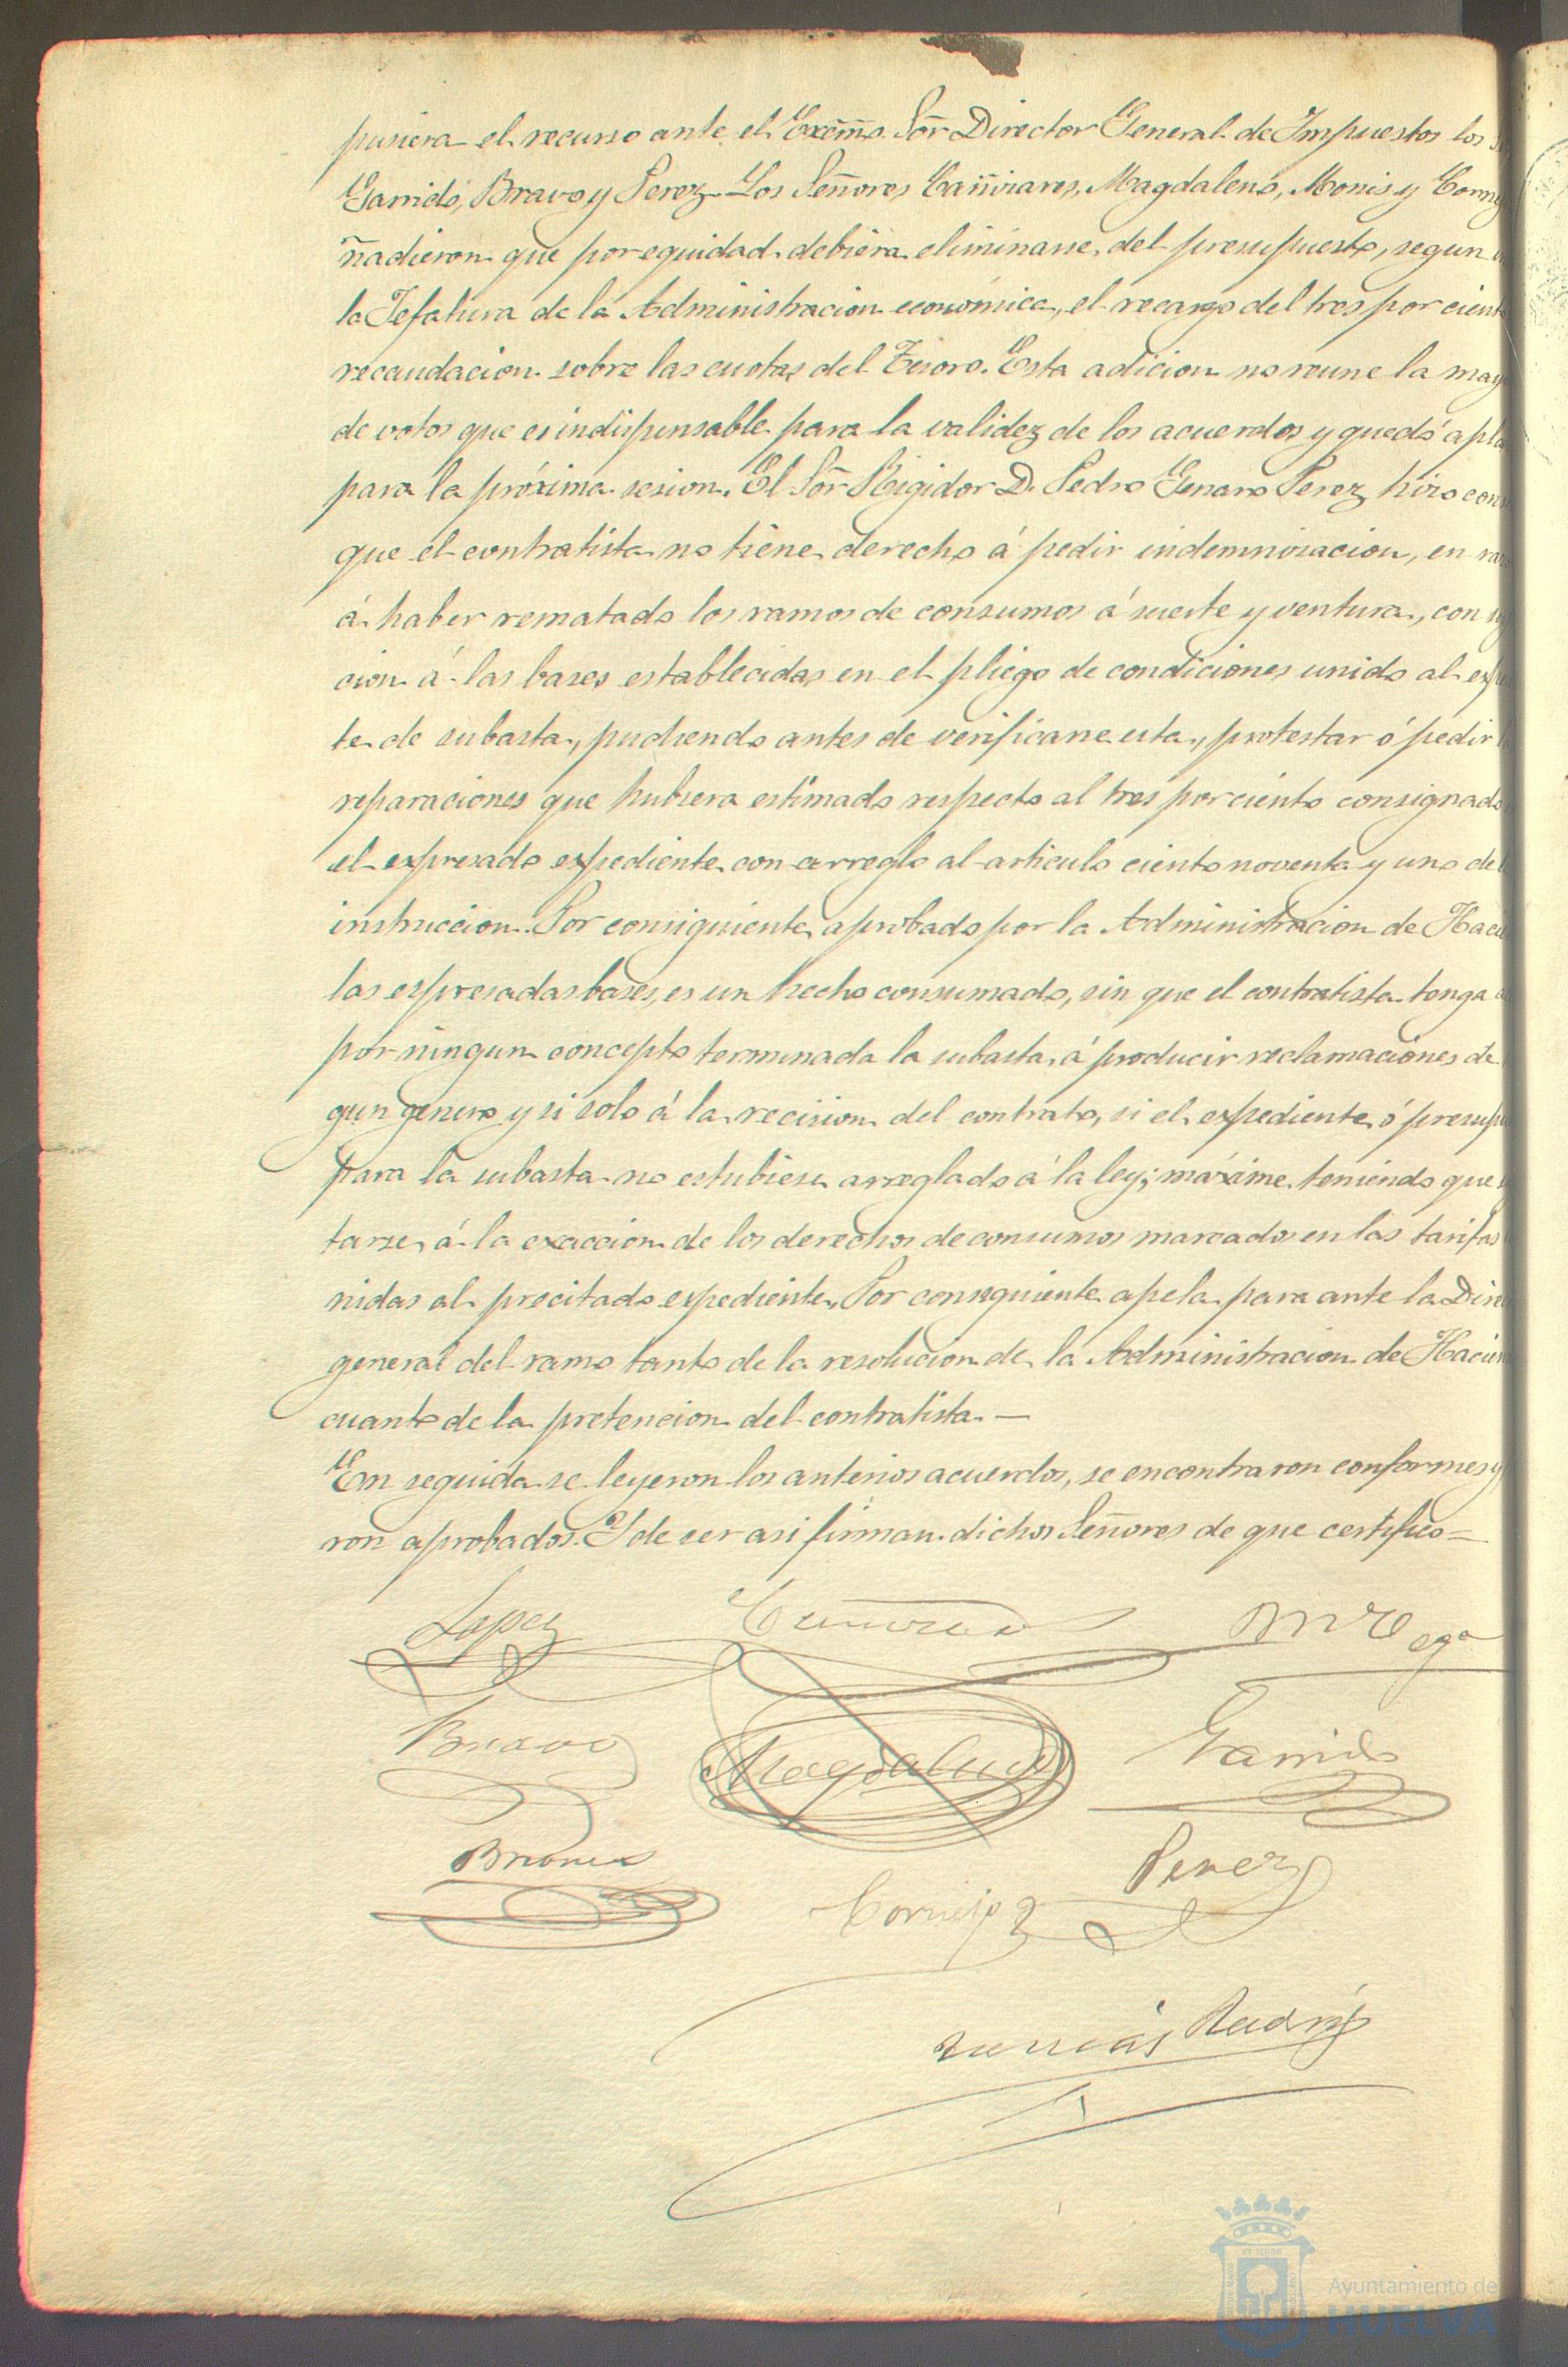 pusiera el recurso ante el Excm̃o. Soñr Director General de Impuestos los
Garrido, Bravo y Perez. Los Señores Cañizares, Magdaleno, Monis y
ñadieron que por equidad debiera eliminarse del presupuesto, segun
la Jefatura de la Administracion económica, el recargo del tres por ciento
recaudacion sobre las cuotas del Tesoro. Esta adicion no reune la
de votos que es indispensable para la validez de los acuerdos y quedó
para la próxima sesion. El Soñr Rigidor D. Pedro Genaro Perez hizo
que el contratista no tiene derecho á pedir indemnizacion, en
á haber rematado los ramos de consumos á suerte y ventura, con
cion á las bases establecidas en el pliego de condiciones unido al
te de subasta, pudiendo antes de verificarse esta, protestar ó pedir
reparaciones que hubiera estimado respecto al tres por ciento consignado
el espresado espediente con arreglo al articulo ciento noventa y uno de
instruccion. Por consiguiente, aprobado por la Administracion de
las espresadas bases, es un hecho consumado, sin que el contratista tenga
por ningun concepto terminada la subasta, á producir reclamaciones de
gun genero y si solo á la recision del contrato, si el espediente ó
para la subasta no estubiese arreglado á la ley; máxime teniendo que
tarse, á la exaccion de los derechos de consumos marcados en las tarifas
nidas al precitado espediente. Por consiguiente apela para ante la
general del ramo tanto de la resolucion de la Administracion de
cuanto de la pretencion del contratista. —
En seguida se leyeron los anterios acuerdos, se encontraron conformes y
ron aprobados. Y de ser asi firman dichos Señores de que certifico =
Lopez
Bravo Magdaleno Garrido
Perez
Cornejo
Rodrig
Ayuntamiento de
HUELVA